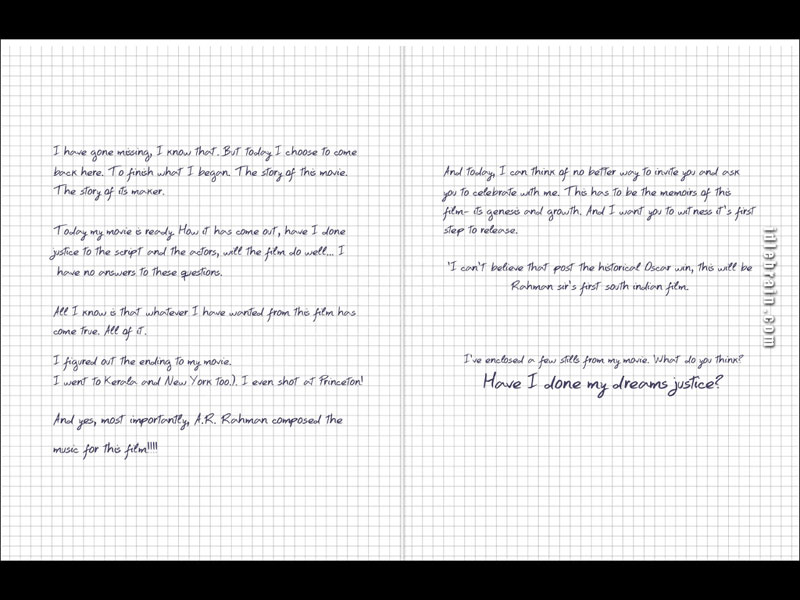 I have gone missing, I know that. But today I choose to come
back here. To finish what I began. The story of this movie.
The story of its maker.
Today my movie is ready. How it has come out, have I done
justice to the script and the actors, will the film do well... I
have no answers to these questions.
All I know is that whatever I have wanted from this film has
come true. All of it.
I figured out the ending to my movie.
I went to Kerala and New York too:). I even shot at Princeton!
And yes, most importantly, A.R. Rahman composed the
music for this film!!!!
And today, I can think of no better way to invite you and ask
you to celebrate with me. This has to be the memoirs of this
film- its genesis and growth. And I want you to witness it's first
step to release.
'I can't believe that post the historical Oscar win, this will be
Rahman sir's first south indian film.
I've enclosed a few stills from my movie. What do you think?
Have I done my dreams justice?
idlebrain.com